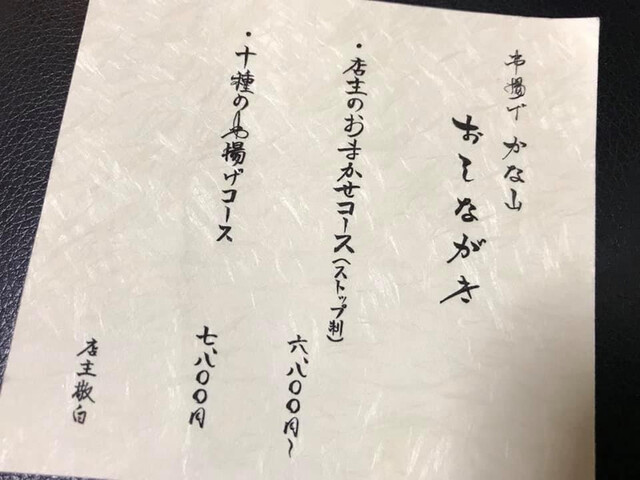 串揚げ かな山
おしながき
・店主のおまかせコース(ストップ制)
六、八〇〇円~
・十種の串揚げコース
七、八〇〇円
店主敬白